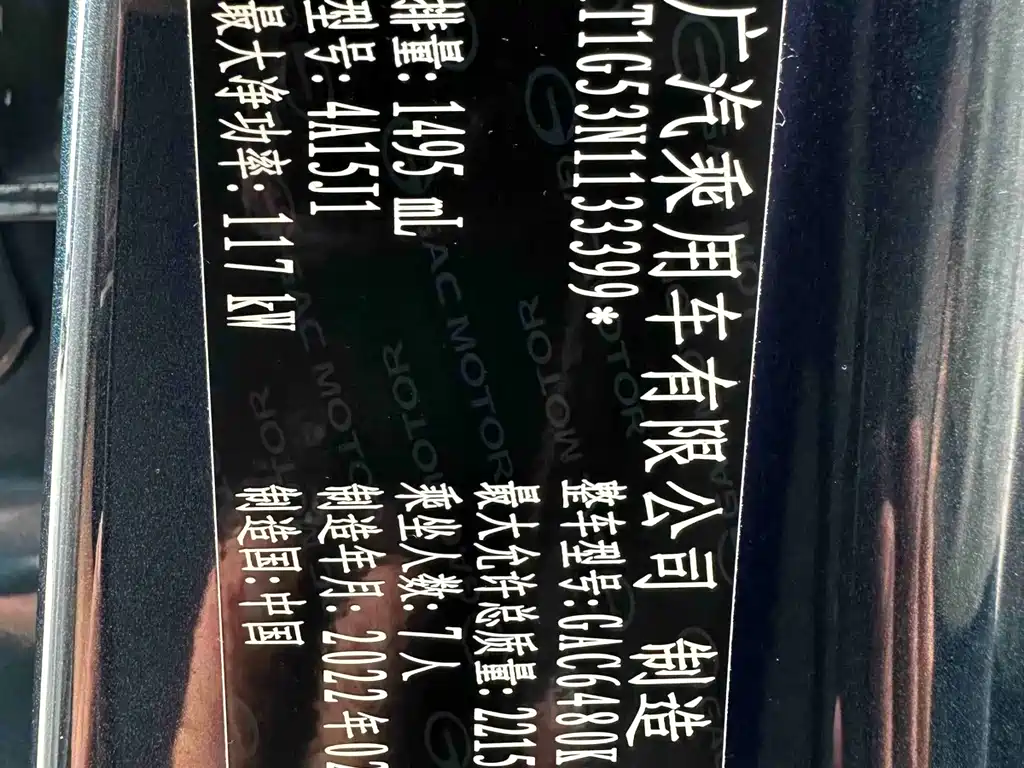 广汽乘用车有限公司 制造
T1G53N1133399*
整车型号:GAC6480K
最大允许总质量:2215
排量: 1495 mL
乘坐人数: 7人
型号: 4A15J1
制造年月: 2022年02
最大净功率: 117 kW
制造国:中国
GAC MOTOR